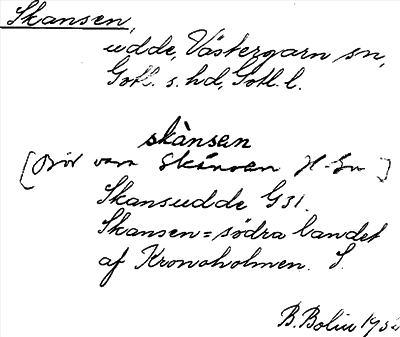 Skansen,
udde, Västergarn sn,
Gotl. s. hd, Gotl. l.
skànsen
[Bör vara Skànsen H. Gn]
Skansudde G31.
Skansen = södra landet
af Kronoholmen. S.
B. Bolin 19